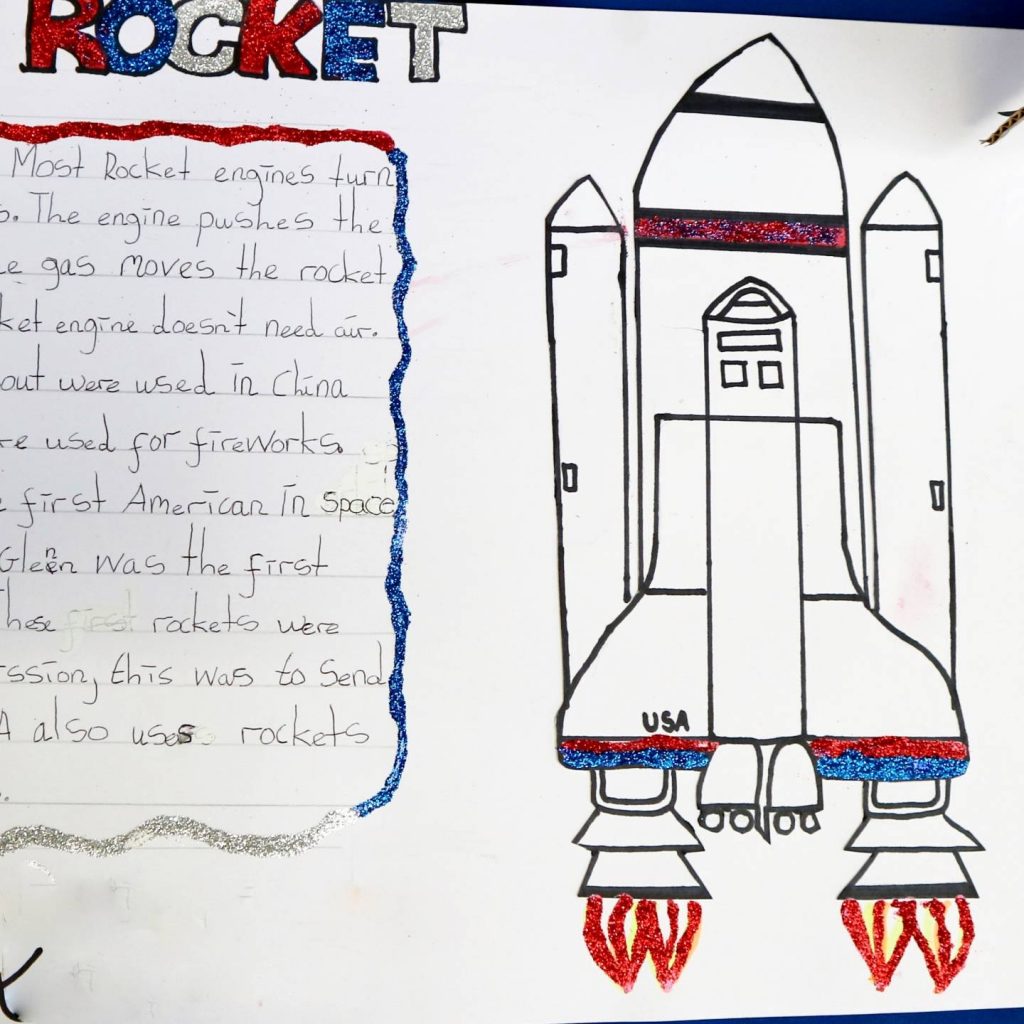 ROCKET
Most Rocket engines turn
s. The engine pushes the
e gas moves the rocket
ket engine doesn't need air.
out were used in China
re used for fireworks.
e first American in space
Glenn was the first
These first rockets were
ission, this was to Send
A also uses rockets
USA